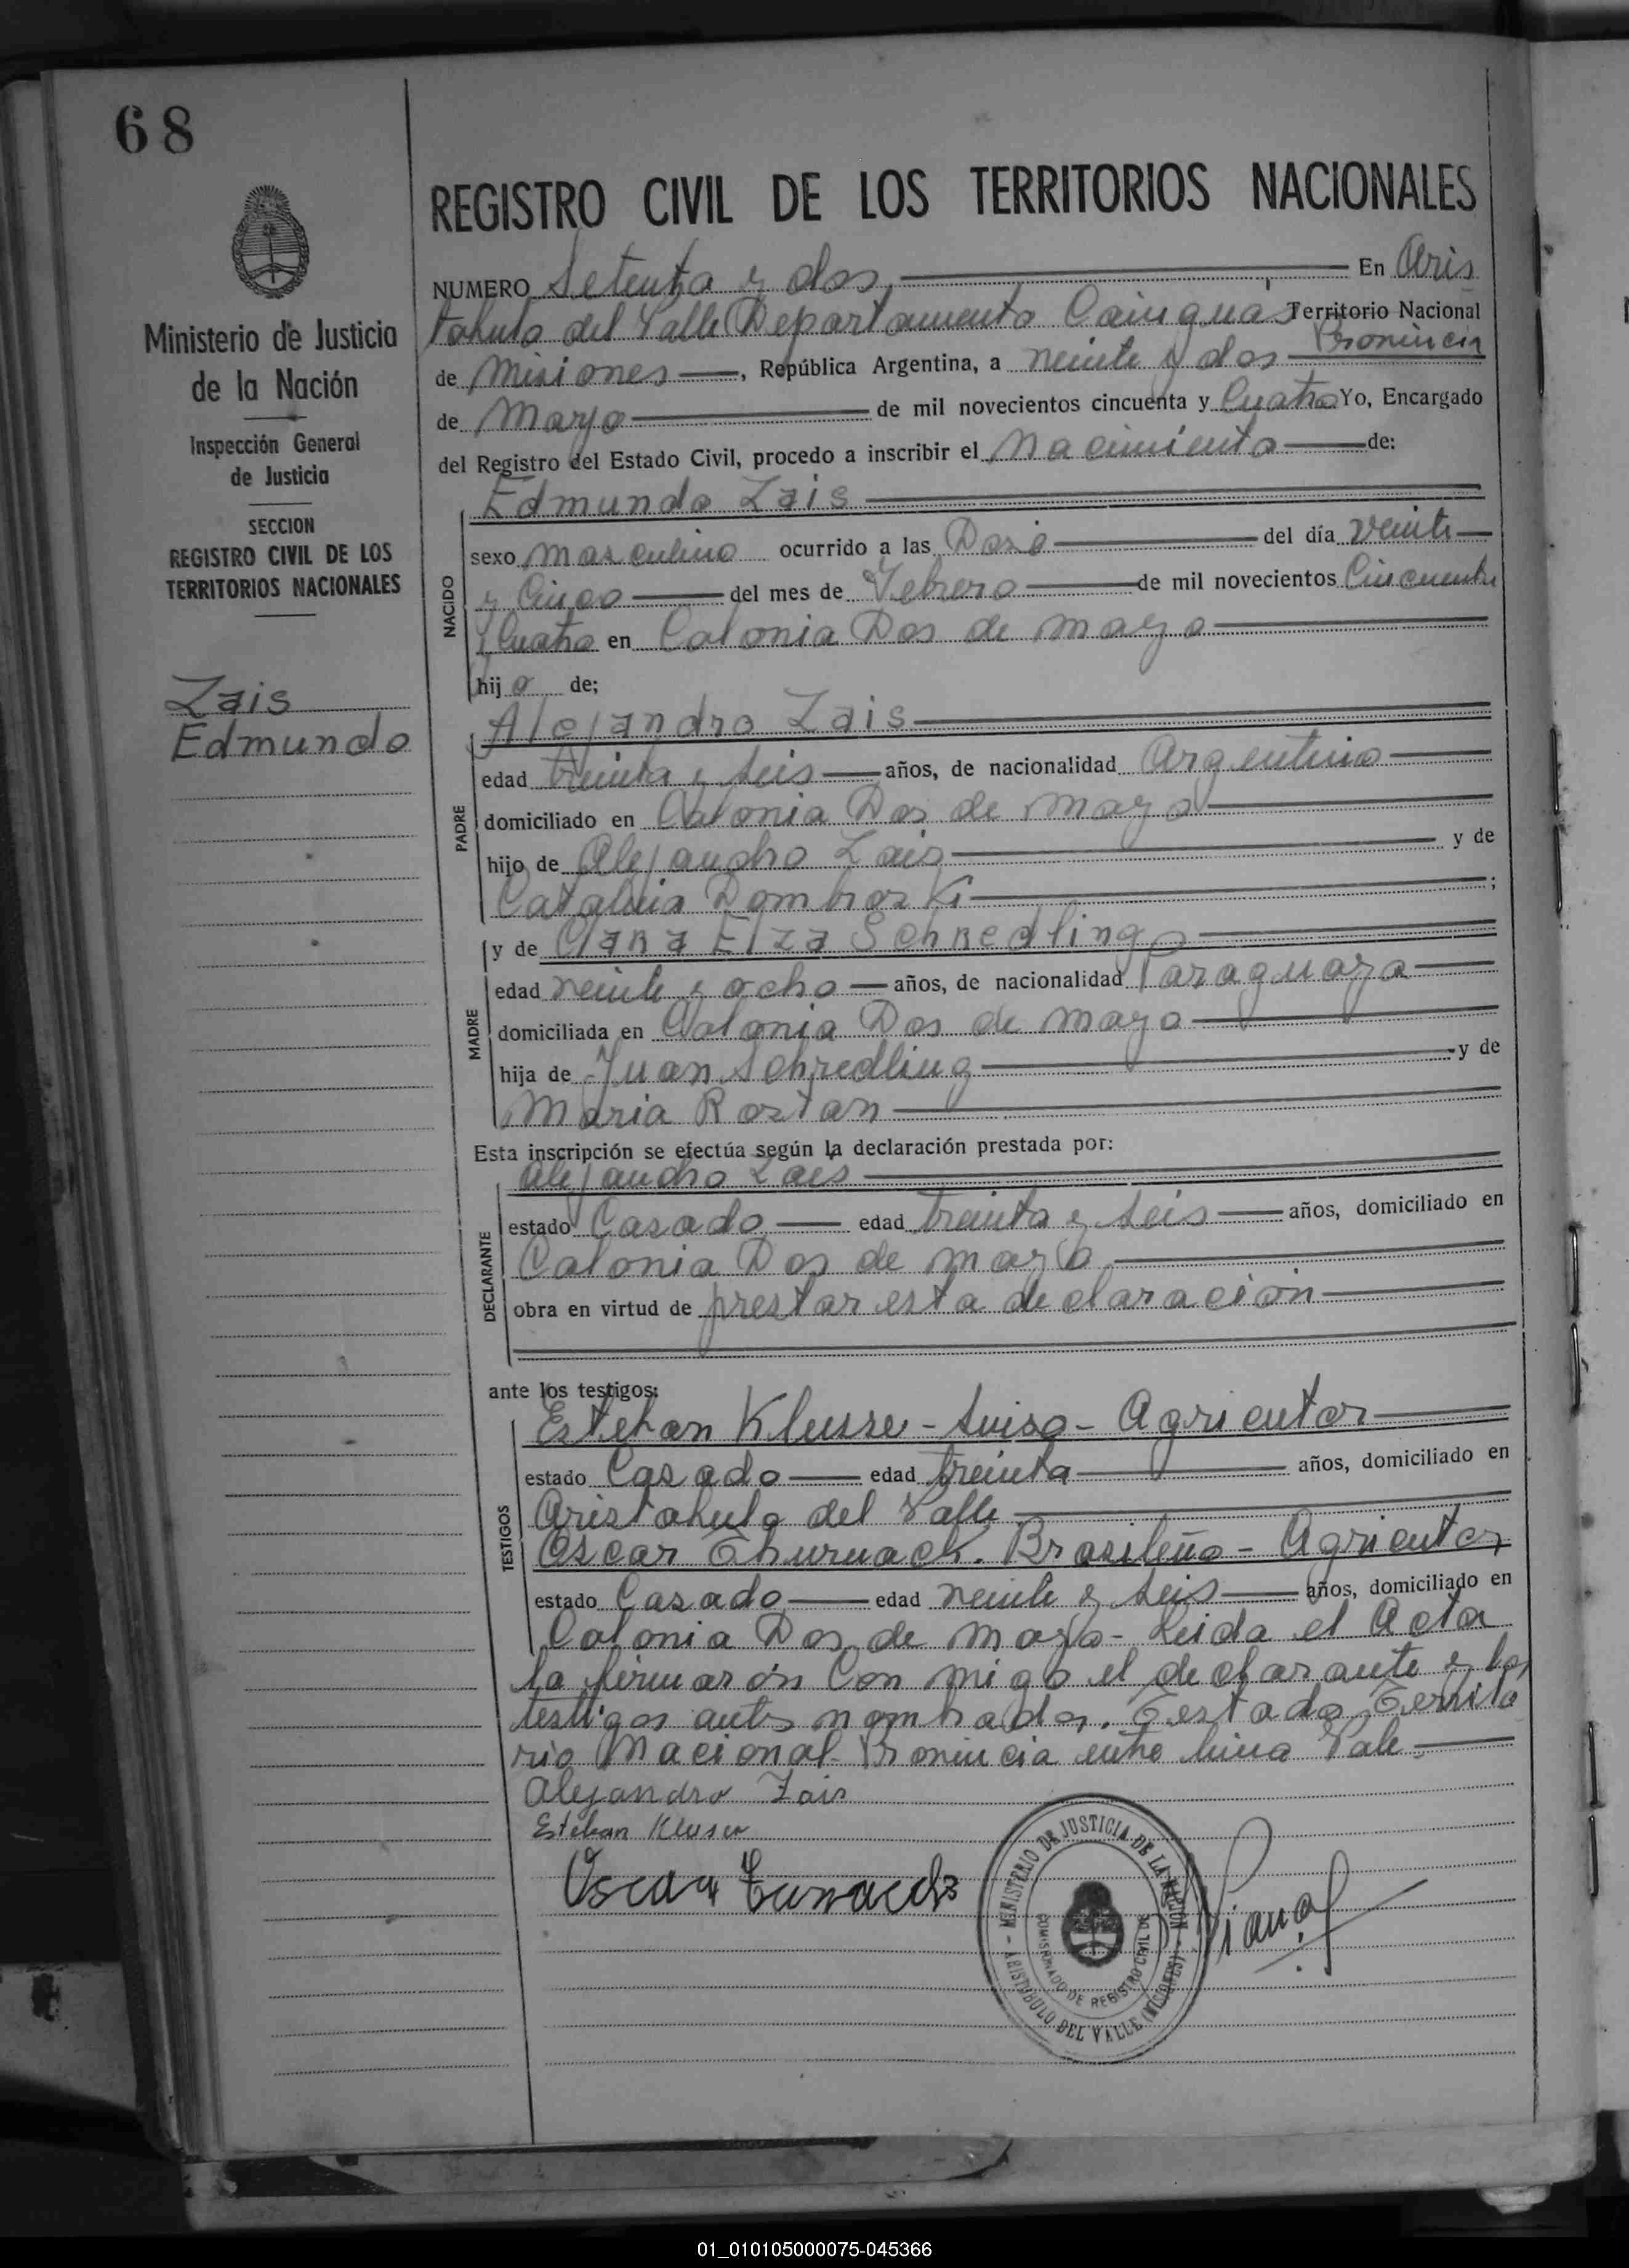 68
Ministerio de Justicia
de la Nación
Inspección General
de Justicia
SECCION
REGISTRO CIVIL DE LOS
TERRITORIOS NACIONALES
Zais
Edmundo
REGISTRO CIVIL DE LOS TERRITORIOS NACIONALES
NUMERO Setenta y dos En Aris
tobulo del Valle Departamento Cainguás Territorio Nacional
Provincia
de Misiones, República Argentina, a veinte y dos
de Mayo de mil novecientos cincuenta y Cuatro Yo, Encargado
del Registro del Estado Civil, procedo a inscribir el Nacimiento de:
Edmundo Zais
NACIDO
sexo masculino ocurrido a las Dose del día veinte
y Cinco del mes de Febrero de mil novecientos Cincuenta
y Cuatro en Colonia Dos de mayo
hijo de;
PADRE
Alejandro Zais
edad treinta y seis años, de nacionalidad Argentino
domiciliado en Colonia Dos de mayo
hijo de Alejandro Zais y de
Catalina Dombroski;
MADRE
y de Clara Elza Schredling
edad veinte y ocho años, de nacionalidad Paraguaya
domiciliada en Colonia Dos de mayo
hija de Juan Schredling y de
Maria Rostan
Esta inscripción se efectúa según la declaración prestada por:
DECLARANTE
Alejandro Zais
estado Casado edad treinta y seis años, domiciliado en
Colonia Dos de mayo
obra en virtud de prestar esta declaración
ante los testigos:
TESTIGOS
Esteban Klusse - Suiso - Agricutor
estado Casado edad treinta años, domiciliado en
Aristobulo del Valle
Oscar Brasileño - Agricutor
estado Casado edad veinte y seis años, domiciliado en
Colonia Dos de mayo - Leida el Acta
la firmarón Con migo el declarante y los
testigos antes nombrados. Testado Territo
rio Nacional - Provincia entre linia Vale.
Alejandro Zais
Esteban Klusse
Oscar
MINISTERIO DE JUSTICIA DE LA NACION
COMISIONADO DE REGISTRO CIVIL DE
ARISTOBULO DEL VALLE (MISIONES)
01_010105000075-045366